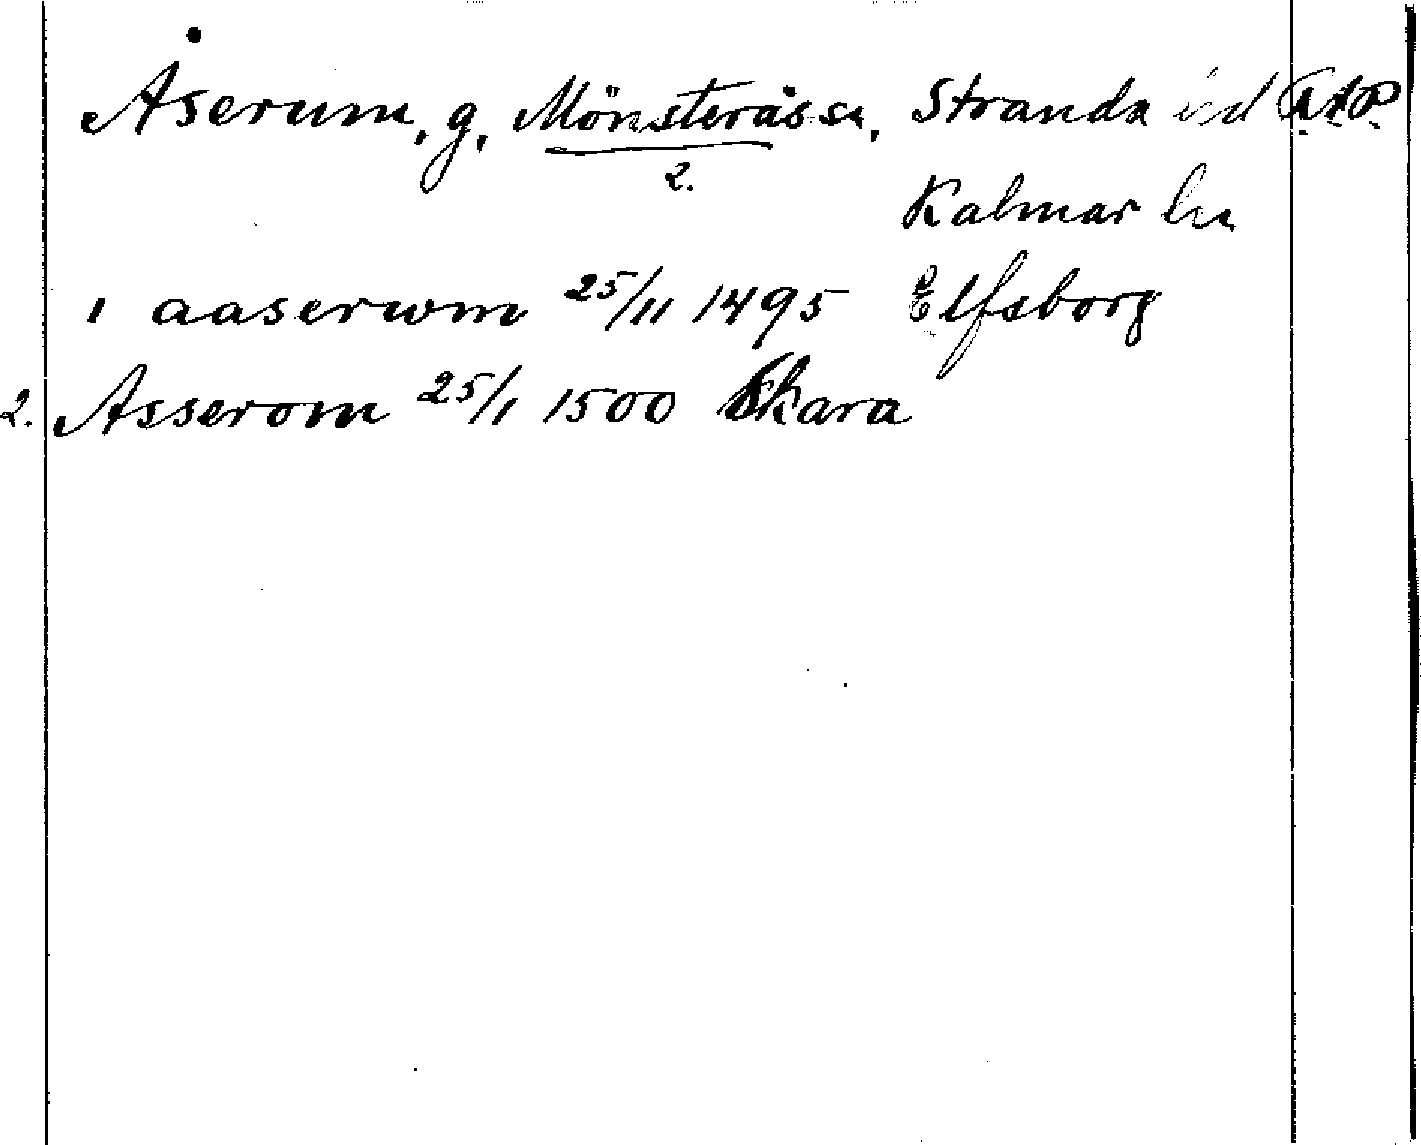 Åserum, g, Mönsterås sn, Stranda hd
2.
Kalmar ln
1 aaserwm 25/11 1495 Elfsborg
2. Asserom 25/1 1500 Skara